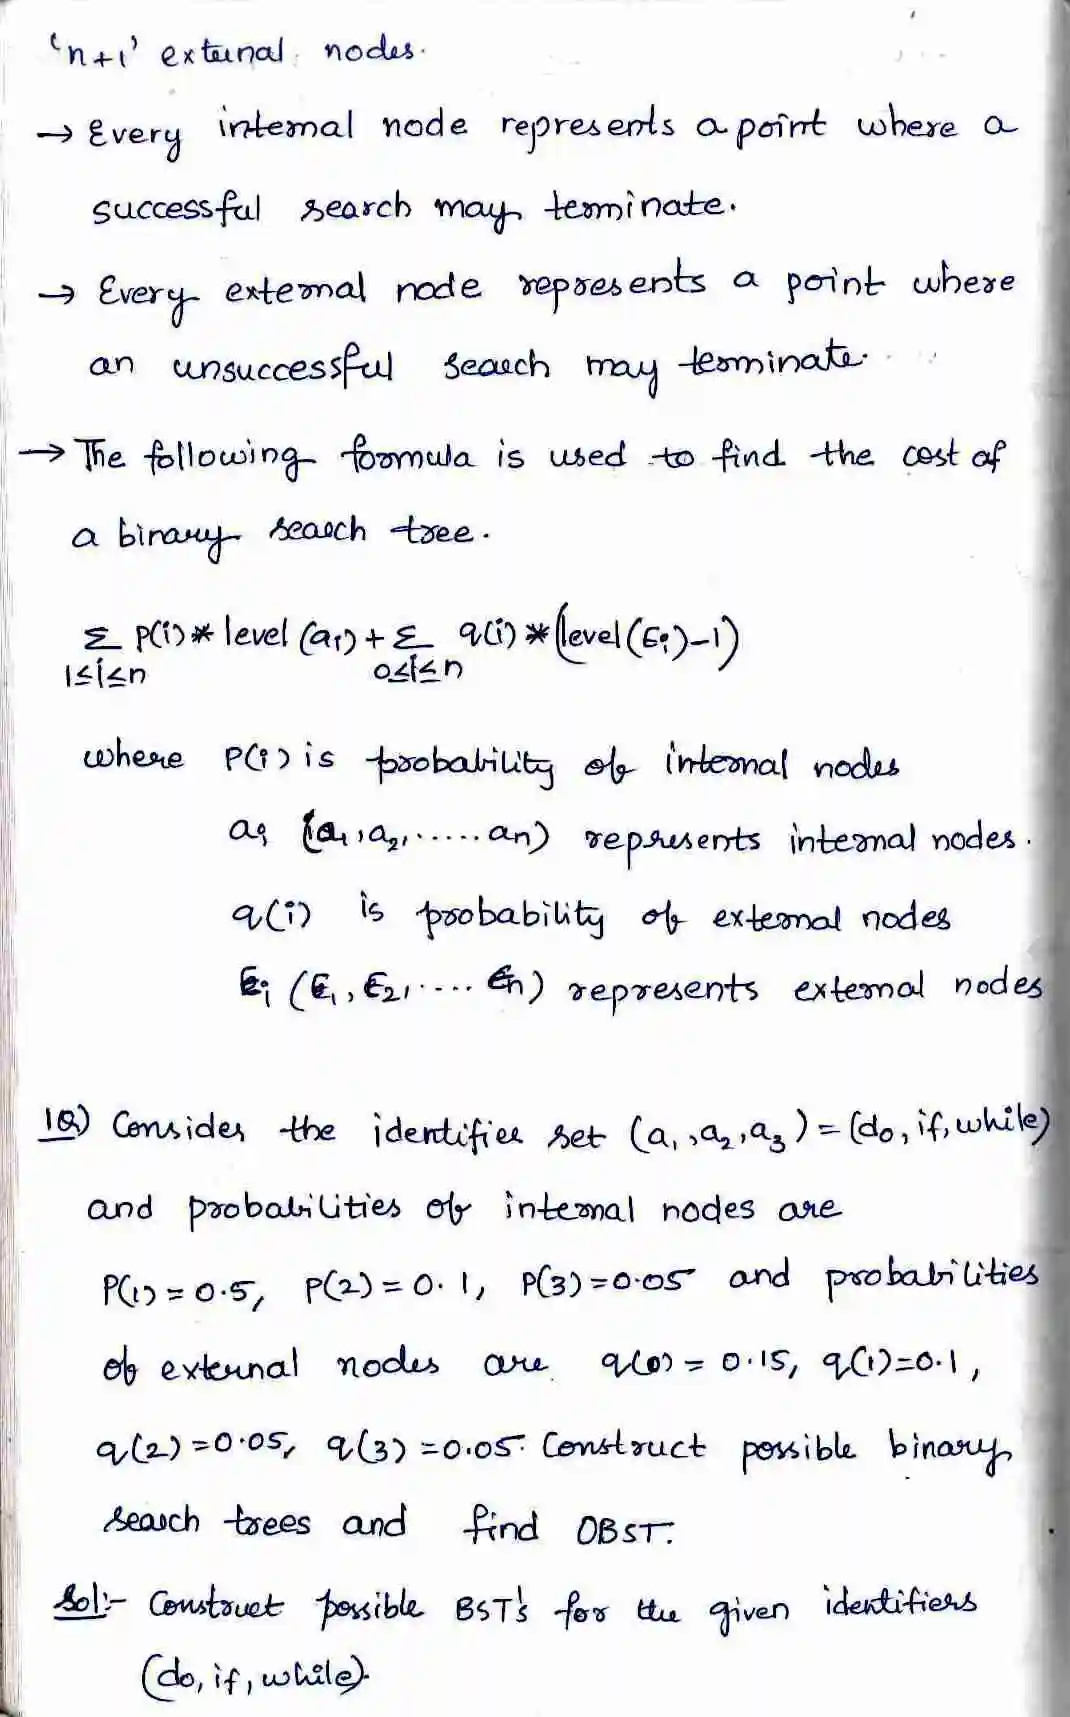 'n+1' external nodes.
→ Every internal node represents a point where a
successful search may terminate.
→ Every external node represents a point where
an unsuccessful search may terminate.
→ The following formula is used to find the cost of
a binary search tree.
Σ P(i) * level (ai) + Σ q(i) * (level(Ei)-1)
1≤i≤n 0≤i≤n
where P(i) is probability of internal nodes
ai (a1, a2, ..... an) represents internal nodes.
q(i) is probability of external nodes
Ei (E1, E2, .... En) represents external nodes
1Q) Consider the identifier set (a1, a2, a3) = (do, if, while)
and probabilities of internal nodes are
P(1) = 0.5, P(2) = 0.1, P(3) = 0.05 and probabilities
of external nodes are q(0) = 0.15, q(1)=0.1,
q(2) = 0.05, q(3) = 0.05. Construct possible binary
search trees and find OBST.
Sol:- Construct possible BST's for the given identifiers
(do, if, while).